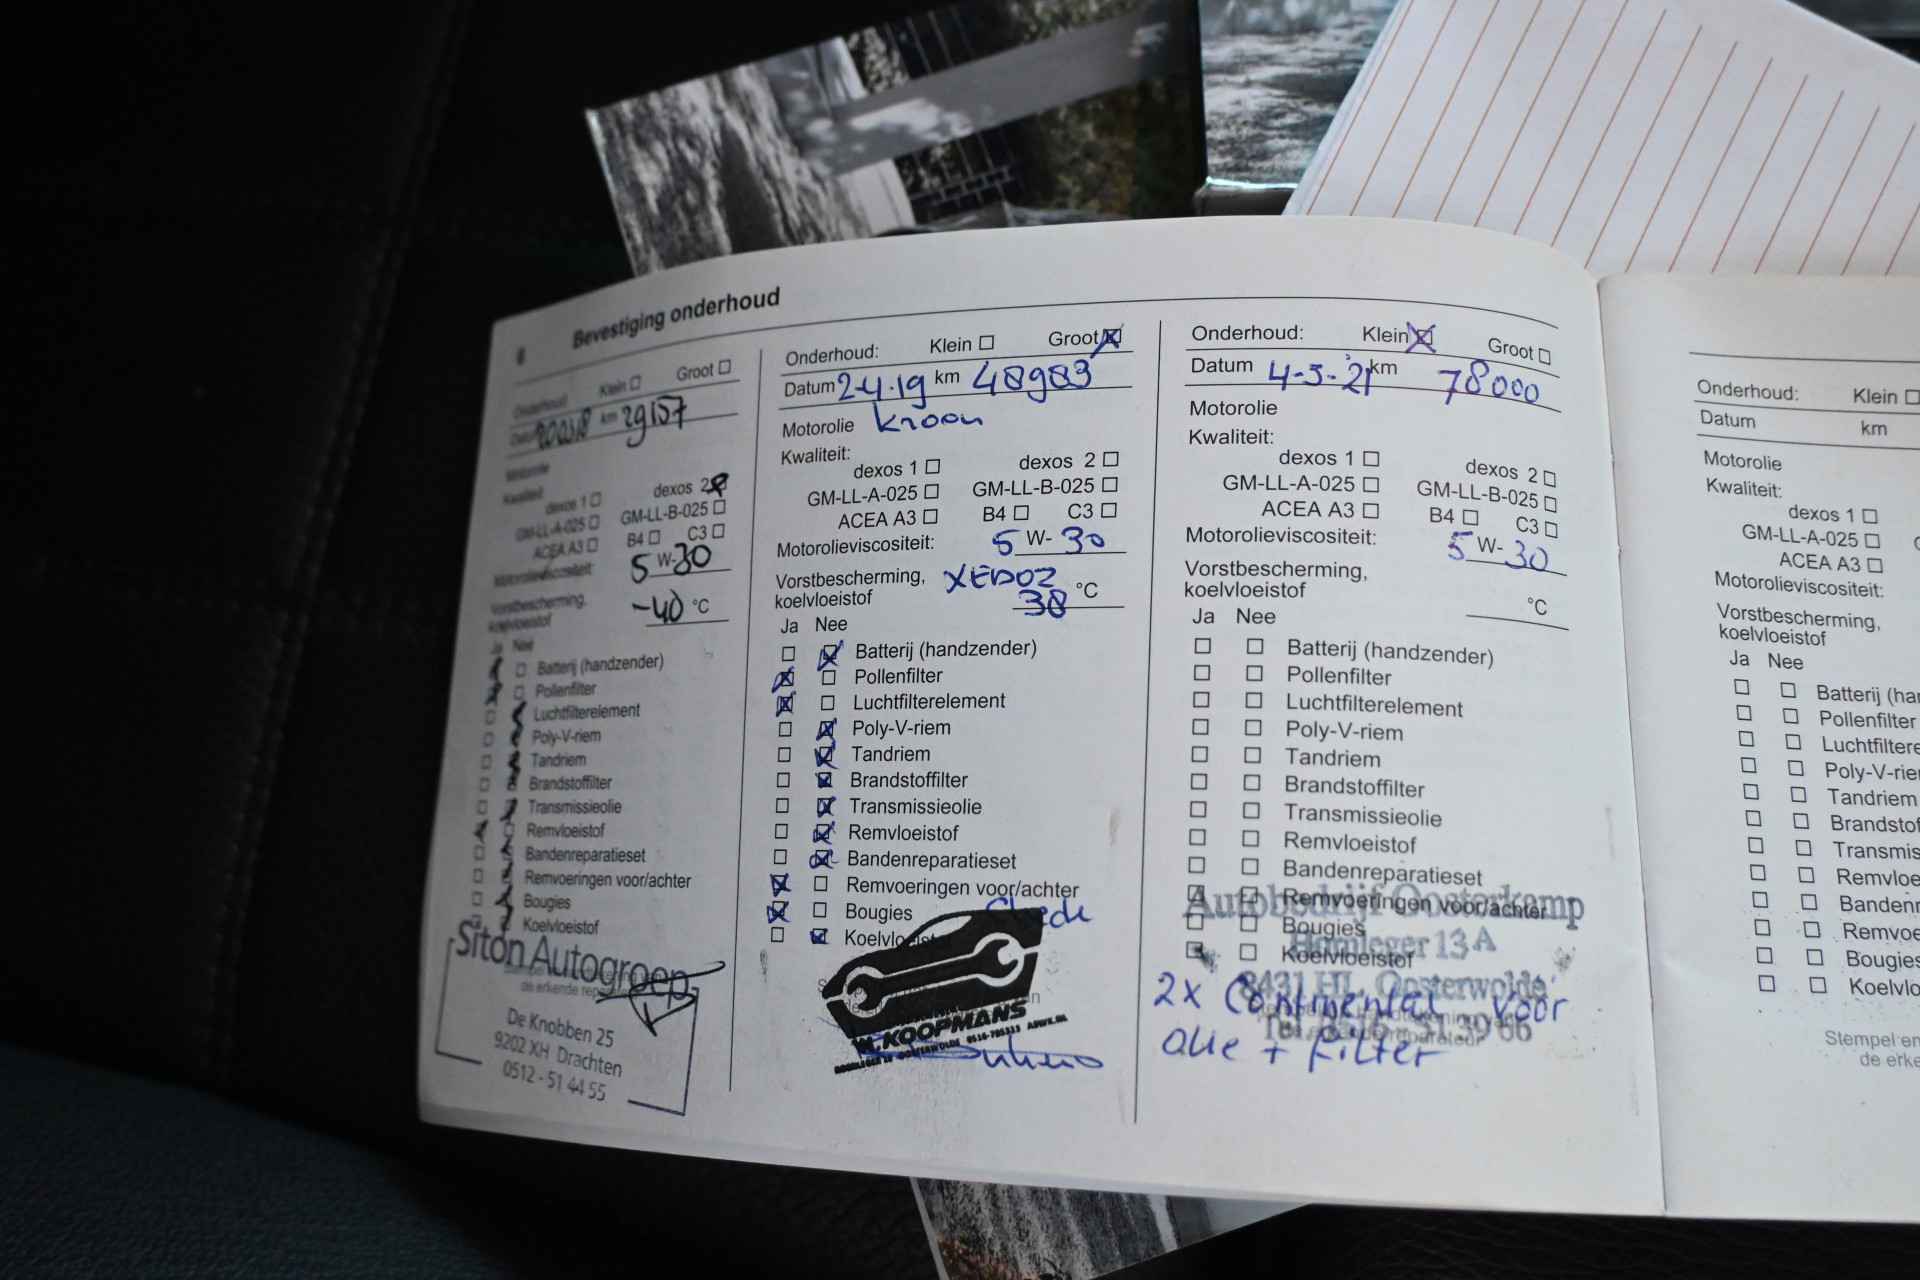 Bevestiging onderhoud
Onderhoud: Klein Groot
km 29157
Motorolie
Kwaliteit:
dexos 1 dexos 2
GM-LL-A-025 GM-LL-B-025
ACEA A3 B4 C3
Motorolieviscositeit: 5 W-30
Vorstbescherming,
koelvloeistof -40 °C
Ja Nee
Batterij (handzender)
Pollenfilter
Luchtfilterelement
Poly-V-riem
Tandriem
Brandstoffilter
Transmissieolie
Remvloeistof
Bandenreparatieset
Remvoeringen voor/achter
Bougies
Koelvloeistof
Siton Autogroep
De Knobben 25
9202 XH Drachten
0512 - 51 44 55
Onderhoud: Klein Groot
Datum 2-4-19 km 48983
Motorolie Kroon
Kwaliteit:
dexos 1 dexos 2
GM-LL-A-025 GM-LL-B-025
ACEA A3 B4 C3
Motorolieviscositeit: 5 W-30
Vorstbescherming, XEDOZ
koelvloeistof 38 °C
Ja Nee
Batterij (handzender)
Pollenfilter
Luchtfilterelement
Poly-V-riem
Tandriem
Brandstoffilter
Transmissieolie
Remvloeistof
Bandenreparatieset
Remvoeringen voor/achter
Bougies Check
W.KOOPMANS
Onderhoud: Klein Groot
Datum 4-5-'21 km 78000
Motorolie
Kwaliteit:
dexos 1 dexos 2
GM-LL-A-025 GM-LL-B-025
ACEA A3 B4 C3
Motorolieviscositeit: 5 W-30
Vorstbescherming,
koelvloeistof °C
Ja Nee
Batterij (handzender)
Pollenfilter
Luchtfilterelement
Poly-V-riem
Tandriem
Brandstoffilter
Transmissieolie
Remvloeistof
Bandenreparatieset
Remvoeringen voor/achter
Autobedrijf Oosterkamp
Bougies
Hornleger 13 A
Koelvloeistof
8431 HL Oosterwolde
2x Continental voor
olie + filter
Onderhoud: Klein
Datum km
Motorolie
Kwaliteit:
dexos 1
GM-LL-A-025
ACEA A3
Motorolieviscositeit:
Vorstbescherming,
koelvloeistof
Ja Nee
Batterij (har
Pollenfilter
Luchtfiltere
Poly-V-rie
Tandriem
Brandstof
Transmis
Remvloe
Bandenr
Remvoe
Bougies
Koelvlo
Stempel en
de erke